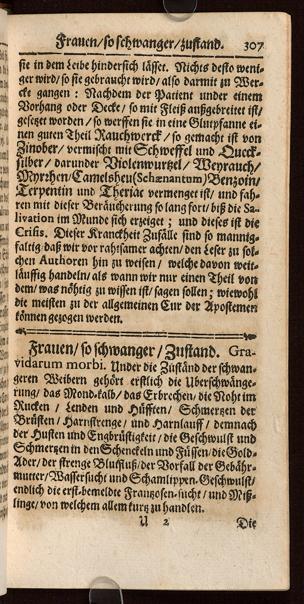 Frauen/so schwanger/zustand. 307
sie in dem Leibe hindersich lässet. Nichts desto weni-
ger wird/so sie gebraucht wird/also darmit zu Wer-
cke gangen: Nachdem der Patient under einem
Vorhang oder Decke/so mit Fleiß außgebreitet ist/
gesetzt worden/so werffen sie in eine Glutpfanne ei-
nen guten Theil Rauchwerck/so gemacht ist von
Zinober/vermischt mit Schweffel und Queck-
silber/darunder Violenwurtzel/Weyrauch/
Myrrhen/Camelsheu(Schœnantum)Benzoin/
Terpentin und Theriac vermenget ist/und fah-
ren mit dieser Beräucherung so lang fort/biß die Sa-
livation im Munde sich erzeiget; und dieses ist die
Crisis. Dieser Kranckheit Zufälle sind so mannig-
faltig/daß wir vor rahtsamer achten/den Leser zu sol-
chen Authoren hin zu weisen/welche davon weit-
läuffig handeln/als wann wir nur einen Theil von
dem/was nöhtig zu wissen ist/sagen sollen; wiewohl
die meisten zu der allgemeinen Cur der Apostemen
können gezogen werden.
Frauen/so schwanger/Zustand. Gra-
vidarum morbi. Under die Zuständ der schwan-
geren Weibern gehört erstlich die Uberschwänge-
rung/das Mond-kalb/das Erbrechen/die Noht im
Rucken/Lenden und Hüfften/Schmertzen der
Brüsten/Harnstrenge/und Harnlauff/demnach
der Husten und Engbrüstigkeit/die Geschwulst und
Schmertzen in den Schenckeln und Füssen/die Gold-
Ader/der strenge Blutfluß/der Vorfall der Gebähr-
mutter/Wassersucht und Schamlippen-Geschwulst/
endlich die erst-bemeldte Frantzosen-sucht/und Miß-
linge/von welchem allem kurtz zu handlen.
U 2 Die